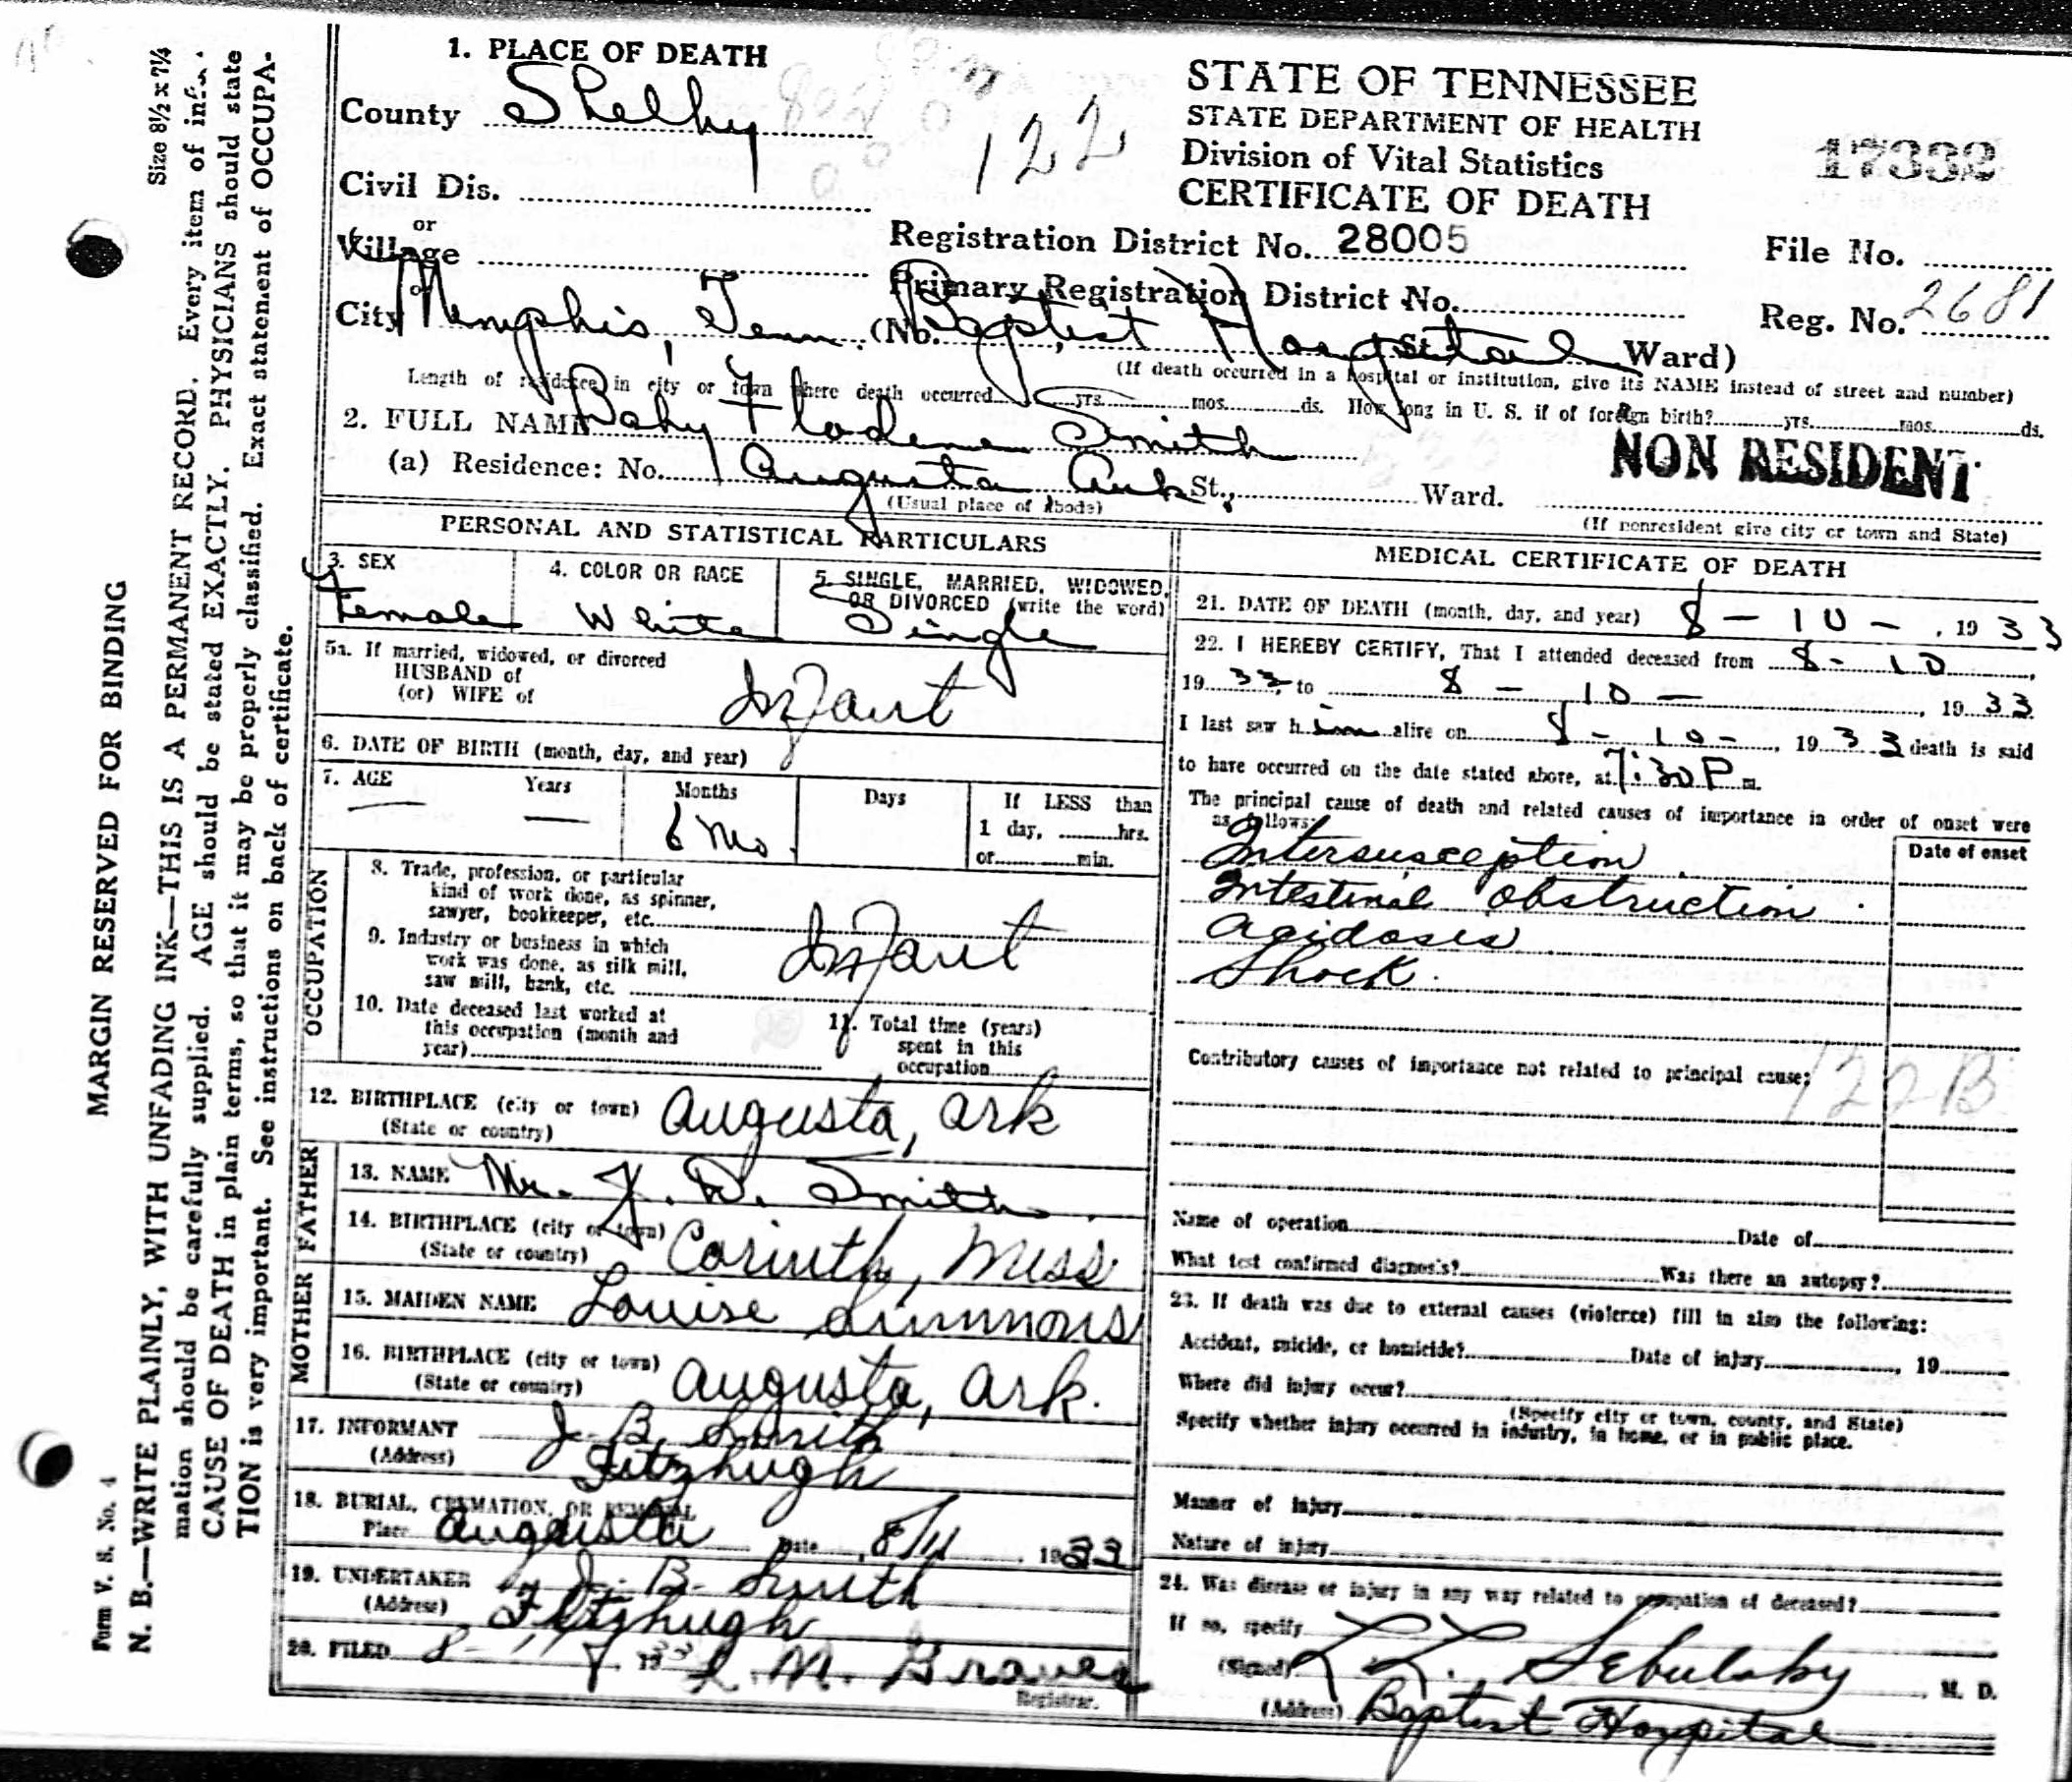 Size 8½ x 7¼
MARGIN RESERVED FOR BINDING
N. B.—WRITE PLAINLY, WITH UNFADING INK—THIS IS A PERMANENT RECORD. Every item of
mation should be carefully supplied. AGE should be stated EXACTLY. PHYSICIANS should state
CAUSE OF DEATH in plain terms, so that it may be properly classified. Exact statement of OCCUPA-
TION is very important. See instructions on back of certificate.
Form V. S. No. 4
1. PLACE OF DEATH
County Shelby
122
Civil Dis.
or
Village
or
City Memphis, Tenn. (No. Baptist Hospital St. Ward)
STATE OF TENNESSEE
STATE DEPARTMENT OF HEALTH
Division of Vital Statistics
CERTIFICATE OF DEATH
17332
Registration District No. 28005
File No.
Primary Registration District No.
Reg. No. 2681
(If death occurred in a hospital or institution, give its NAME instead of street and number)
Length of residence in city or town where death occurred yrs. mos. ds. How long in U. S. if of foreign birth? yrs. mos. ds.
2. FULL NAME Baby Flodene Smith
NON RESIDENT
(a) Residence: No. Augusta Ark St., Ward.
(Usual place of abode)
(If nonresident give city or town and State)
PERSONAL AND STATISTICAL PARTICULARS
3. SEX
Female
4. COLOR OR RACE
White
5. SINGLE, MARRIED, WIDOWED,
OR DIVORCED (write the word)
Single
5a. If married, widowed, or divorced
HUSBAND of
(or) WIFE of
Infant
6. DATE OF BIRTH (month, day, and year)
7. AGE Years Months Days If LESS than
1 day, hrs.
or min.
6 Mo.
OCCUPATION
8. Trade, profession, or particular
kind of work done, as spinner,
sawyer, bookkeeper, etc.
9. Industry or business in which
work was done, as silk mill,
saw mill, bank, etc.
Infant
10. Date deceased last worked at
this occupation (month and
year)
11. Total time (years)
spent in this
occupation
12. BIRTHPLACE (city or town) Augusta, Ark
(State or country)
FATHER
13. NAME Mr. J. D. Smith
14. BIRTHPLACE (city or town) Corinth, Miss
(State or country)
MOTHER
15. MAIDEN NAME Louise Simmons
16. BIRTHPLACE (city or town) Augusta, Ark.
(State or country)
17. INFORMANT J. B. Smith
(Address) Fitzhugh
18. BURIAL, CREMATION, OR REMOVAL
Place Augusta Date 8/11 1933
19. UNDERTAKER J. B. Smith
(Address) Fitzhugh
20. FILED 8- 1933 L. M. Graves
Registrar.
MEDICAL CERTIFICATE OF DEATH
21. DATE OF DEATH (month, day, and year) 8 - 10 - , 1933
22. I HEREBY CERTIFY, That I attended deceased from 8 - 10 ,
19 33, to 8 - 10 - , 19 33
I last saw him alive on 8 - 10 - , 19 33 death is said
to have occurred on the date stated above, at 7:30 P m.
The principal cause of death and related causes of importance in order of onset were
as follows:
Date of onset
Intersusception
Intestinal obstruction
Acidoses
Shock.
Contributory causes of importance not related to principal cause:
122 B
Name of operation Date of
What test confirmed diagnosis? Was there an autopsy?
23. If death was due to external causes (violence) fill in also the following:
Accident, suicide, or homicide? Date of injury , 19
Where did injury occur?
(Specify city or town, county, and State)
Specify whether injury occurred in industry, in home, or in public place.
Manner of injury
Nature of injury
24. Was disease or injury in any way related to occupation of deceased?
If so, specify
(Signed) L. L. Sebulsky , M. D.
(Address) Baptist Hospital